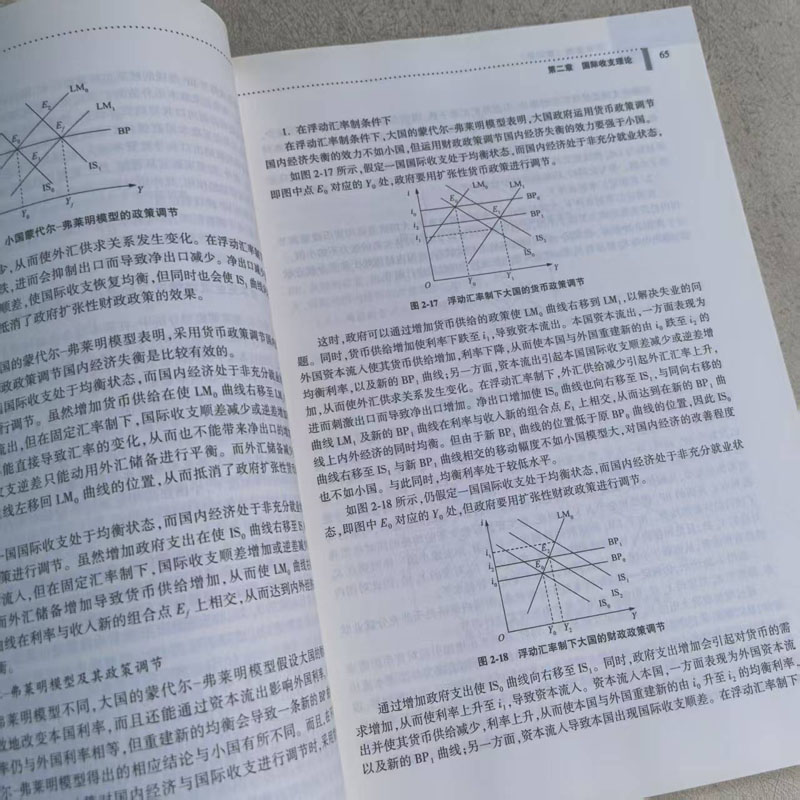 LM₀
LM₁
BP
E₀
E_f
IS₁
IS₀
Y₀
Y_f
Y
小国蒙代尔-弗莱明模型的政策调节
少，从而使外汇供求关系发生变化。在浮动汇率制
跌，进而会抑制出口而导致净出口减少。净出口减少
顺差，使国际收支恢复均衡，但同时也会使 IS₁ 曲线
抵消了政府扩张性财政政策的效果。
国的蒙代尔-弗莱明模型表明，采用货币政策调节
政政策调节国内经济失衡是比较有效的。
国国际收支处于均衡状态，而国内经济处于非充分就业
行调节。虽然增加货币供给在使 LM₀ 曲线右移至 LM₁
流出，但在固定汇率制下，国际收支顺差减少或逆差增加
能直接导致汇率的变化，从而也不能带来净出口的
收支逆差只能动用外汇储备进行平衡。而外汇储备减
线左移回 LM₀ 曲线的位置，从而抵消了政府扩张性货
一国国际收支处于均衡状态，而国内经济处于非充分就业
策进行调节。虽然增加政府支出在使 IS₀ 曲线右移至 IS₁
流入，但在固定汇率制下，国际收支顺差增加或逆差减
而外汇储备增加导致货币供给增加，从而使 LM₀ 曲线
曲线在利率与收入新的组合点 E_f 上相交，从而达到内外经
衡。
-弗莱明模型及其政策调节
弗莱明模型不同，大国的蒙代尔-弗莱明模型假设大国的
效地改变本国利率，而且还能通过资本流出影响外国利率，
率仍与外国利率相等，但重建新的均衡会导致一条新的
尔-弗莱明模型得出的相应结论与小国有所不同。而且，在
对国内经济与国际收支进行调节时，采用
第二章 国际收支理论 65
1. 在浮动汇率制条件下
在浮动汇率制条件下，大国的蒙代尔-弗莱明模型表明，大国政府运用货币政策调节
国内经济失衡的效力不如小国，但运用财政政策调节国内经济失衡的效力要强于小国。
如图 2-17 所示，假定一国国际收支处于均衡状态，而国内经济处于非充分就业状态，
即图中点 E₀ 对应的 Y₀ 处，政府要用扩张性货币政策进行调节。
i
LM₀
LM₁
BP₀
BP₁
E₀
i₀
i₂
i₁
IS₁
IS₀
O
Y₀
Y₁
Y
图 2-17 浮动汇率制下大国的货币政策调节
这时，政府可以通过增加货币供给的政策使 LM₀ 曲线右移到 LM₁，以解决失业的问
题。同时，货币供给增加使利率下跌至 i₁，导致资本流出。本国资本流出，一方面表现为
外国资本流入使其货币供给增加，利率下降，从而使本国与外国重建新的由 i₀ 跌至 i₂ 的
均衡利率，以及新的 BP₁ 曲线；另一方面，资本流出引起本国国际收支顺差减少或逆差增
加，从而使外汇供求关系发生变化。在浮动汇率制下，外汇供给减少引起外汇汇率上升，
进而刺激出口而导致净出口增加。净出口增加使 IS₀ 曲线也向右移至 IS₁，与同向右移的
曲线 LM₁ 及新的 BP₁ 曲线在利率与收入新的组合点 E₁ 上相交，从而达到在新的 BP₁ 曲
线上内外经济的同时均衡。但由于新 BP₁ 曲线的位置低于原 BP₀ 曲线的位置，因此 IS₀
曲线右移至 IS₁ 与新 BP₁ 曲线相交的移动幅度不如小国模型大，对国内经济的改善程度
也不如小国。与此同时，均衡利率处于较低水平。
如图 2-18 所示，仍假定一国国际收支处于均衡状态，而国内经济处于非充分就业状
态，即图中 E₀ 对应的 Y₀ 处，但政府要用扩张性财政政策进行调节。
i
LM₀
BP₁
BP₀
E₂
E₀
i₁
i₀
IS₁
IS₂
IS₀
O
Y₀
Y₂
Y
图 2-18 浮动汇率制下大国的财政政策调节
通过增加政府支出使 IS₀ 曲线向右移至 IS₁。同时，政府支出增加会引起对货币的需
求增加，从而使利率上升至 i₁，导致资本流入。资本流入本国，一方面表现为外国资本流
出并使其货币供给减少，利率上升，从而使本国与外国重建新的由 i₀ 升至 i₂ 的均衡利率，
以及新的 BP₁ 曲线；另一方面，资本流入导致本国出现国际收支顺差。在浮动汇率制下